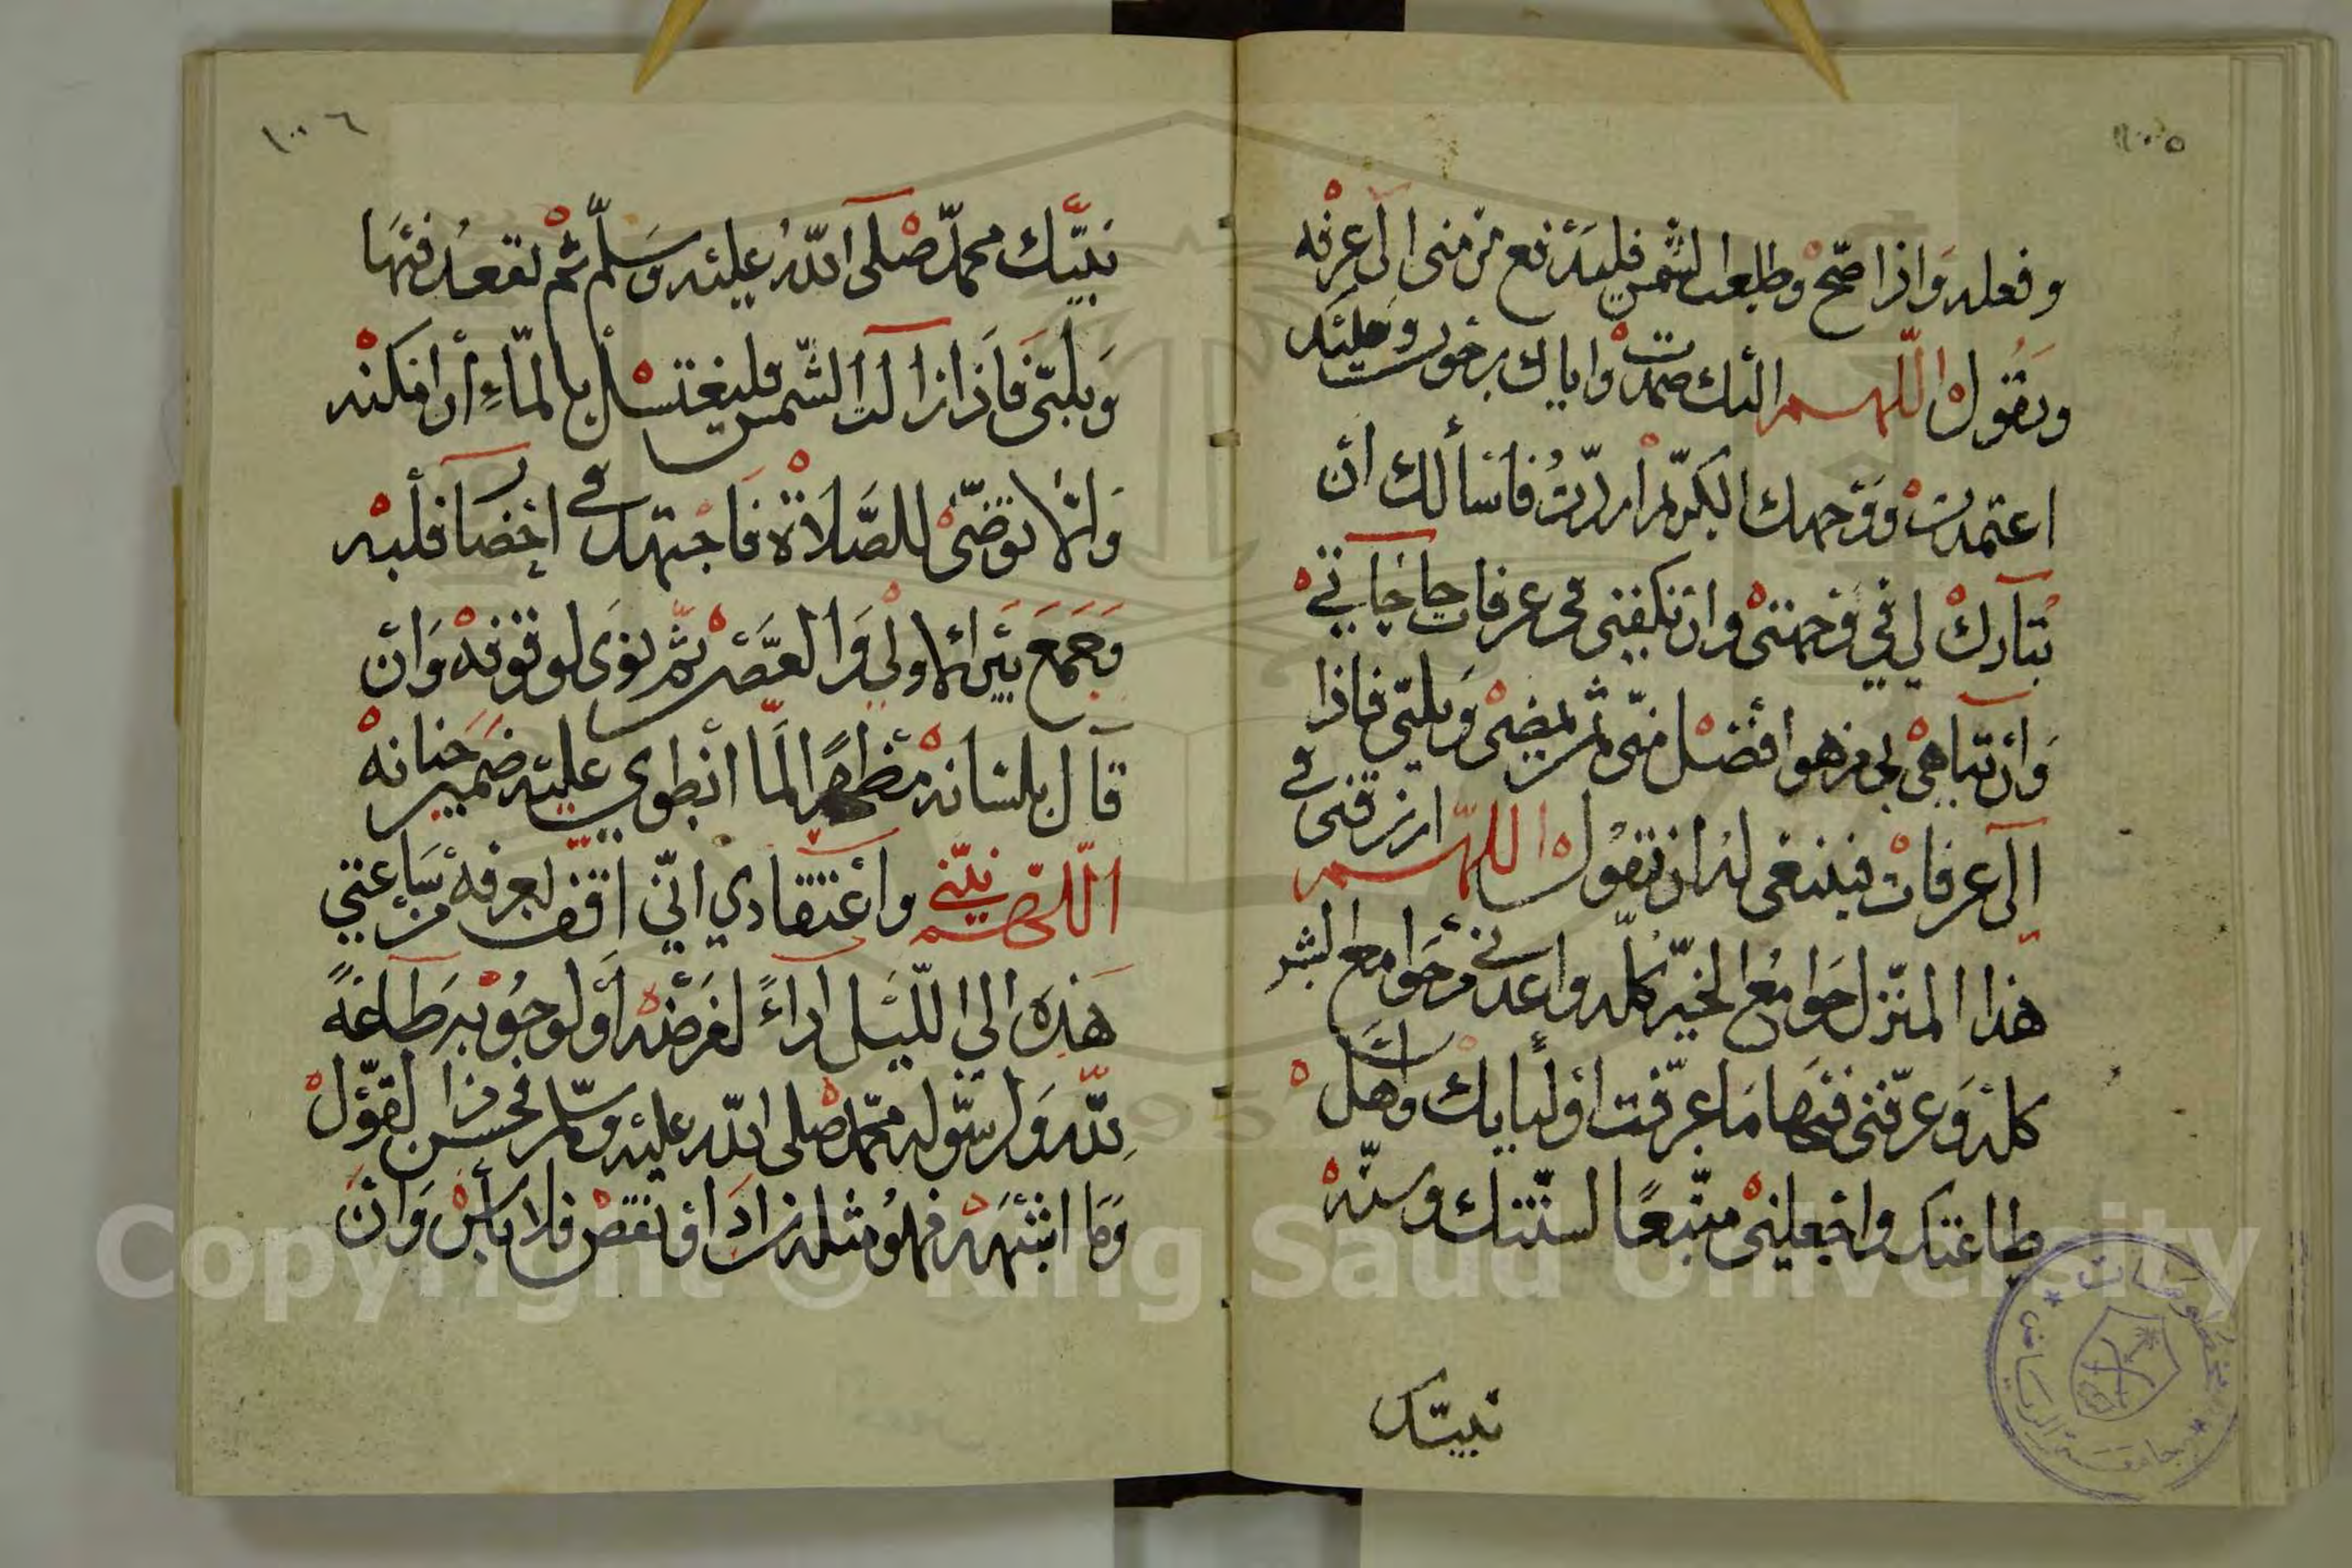 ١٠٠٥
وفعله وَاذا اصبح وطلعت الشمس فليَدْفع من منى الى عرفه
ويَقول اللّهم اليك صمدت واياك رجوت وعليك
اعتمدت وَوَجهك الكريم اردّت فاسألك ان
تبارك لي في وجهتي وان تكفيني في عرفات حاجاتي
وَان تباهي بي من هو افضل منّي ثم يمضي وَيلبّي فاذا
الى عرفات فينبغي له ان تقول اللّهم ارزقني في
هذا المنزل جَوامع الخيْر كلّه واعذني من جَوامع الشر
كله وَعرّفني فيهَا مَا عرّفت اوليايك واهل
طاعتك واجعلني متّبعًا لسنّتك وسنّة
نبيّك
١٠٠٦
نبيّك محمّد صلى اللّه عليه وَسلّم ثم تقعد فيهَا
وَيلبّي فَاذا زالت الشّمس فليغتسل بالمآءِ أن امكنه
وَالّا توضّى للصّلاة فاجتهد في اخضا قلبه
وَجَمَعَ بيْن الاولى وَالعصْر ثم نوَى لوقوفه وَان
قال بلسَانه مظهرًا لمَا انطوى عليه ضمير جنانه
اللّهم نيّتي واعتقادي انّي اقف بعرفه من سَاعتي
هَذِه الى اللّيل اداءً لفرَضه اَو لوجوبه طَاعةً
للّه وَلرسوله محمّد صلى اللّه عليه وسلّم فحسن ذا القوْل
وَمَا اشبَهه فهو مثله زادَ اونقص فلا بأس وَان
Copyright © King Saud University